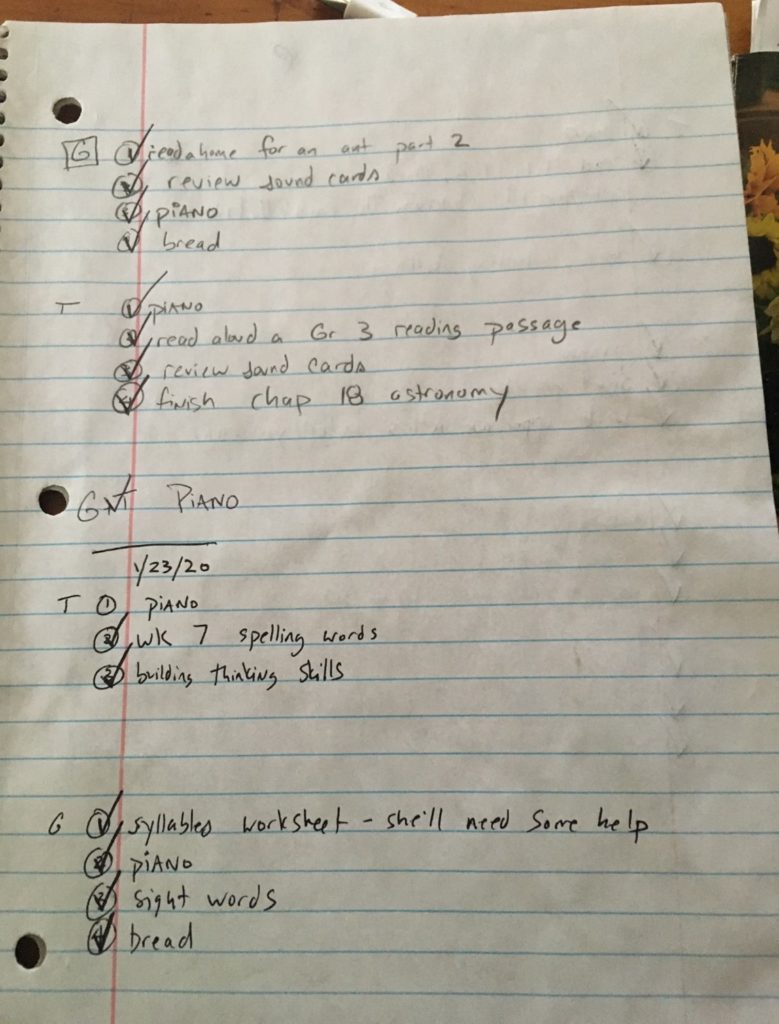 G ① read a home for an ant part 2
② review sound cards
③ PiANO
④ bread
T ① PiANO
② read aloud a Gr 3 reading passage
③ review sound cards
④ finish chap 18 astronomy
PiANO
1/23/20
T ① PiANO
② WK 7 spelling words
③ building thinking skills
G ① syllables worksheet - she'll need some help
② PiANO
③ sight words
④ bread